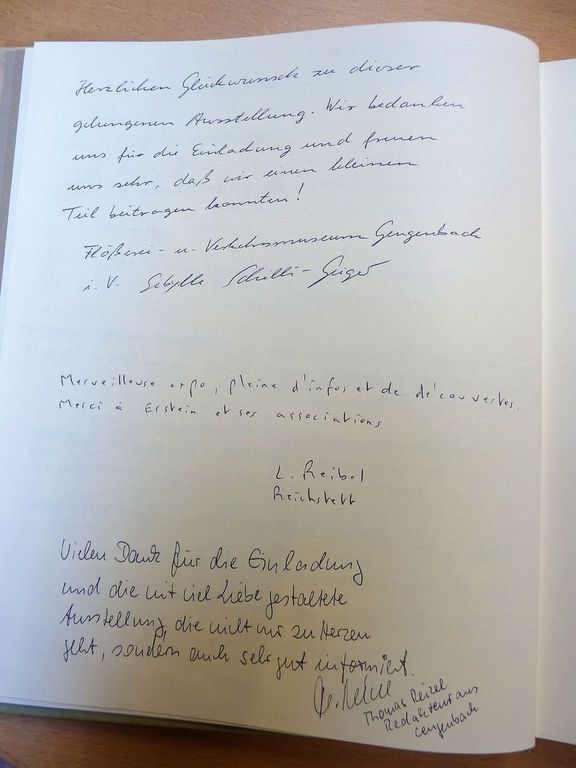 Herzlichen Glückwunsch zu dieser
gelungenen Ausstellung. Wir bedanken
uns für die Einladung und freuen
uns sehr, daß wir einen kleinen
Teil beitragen konnten!
Flößerei- u. Verkehrsmuseum Gengenbach
i. V. Sibylle Schilli-Geiger
Merveilleuse expo, pleine d'infos et de découvertes.
Merci à Erstein et ses associations
L. Reibel
Reichstett
Vielen Dank für die Einladung
und die mit viel Liebe gestaltete
Ausstellung, die nicht nur zu Herzen
geht, sondern auch sehr gut informiert.
Thomas Reizel
Redakteur aus
Gengenbach